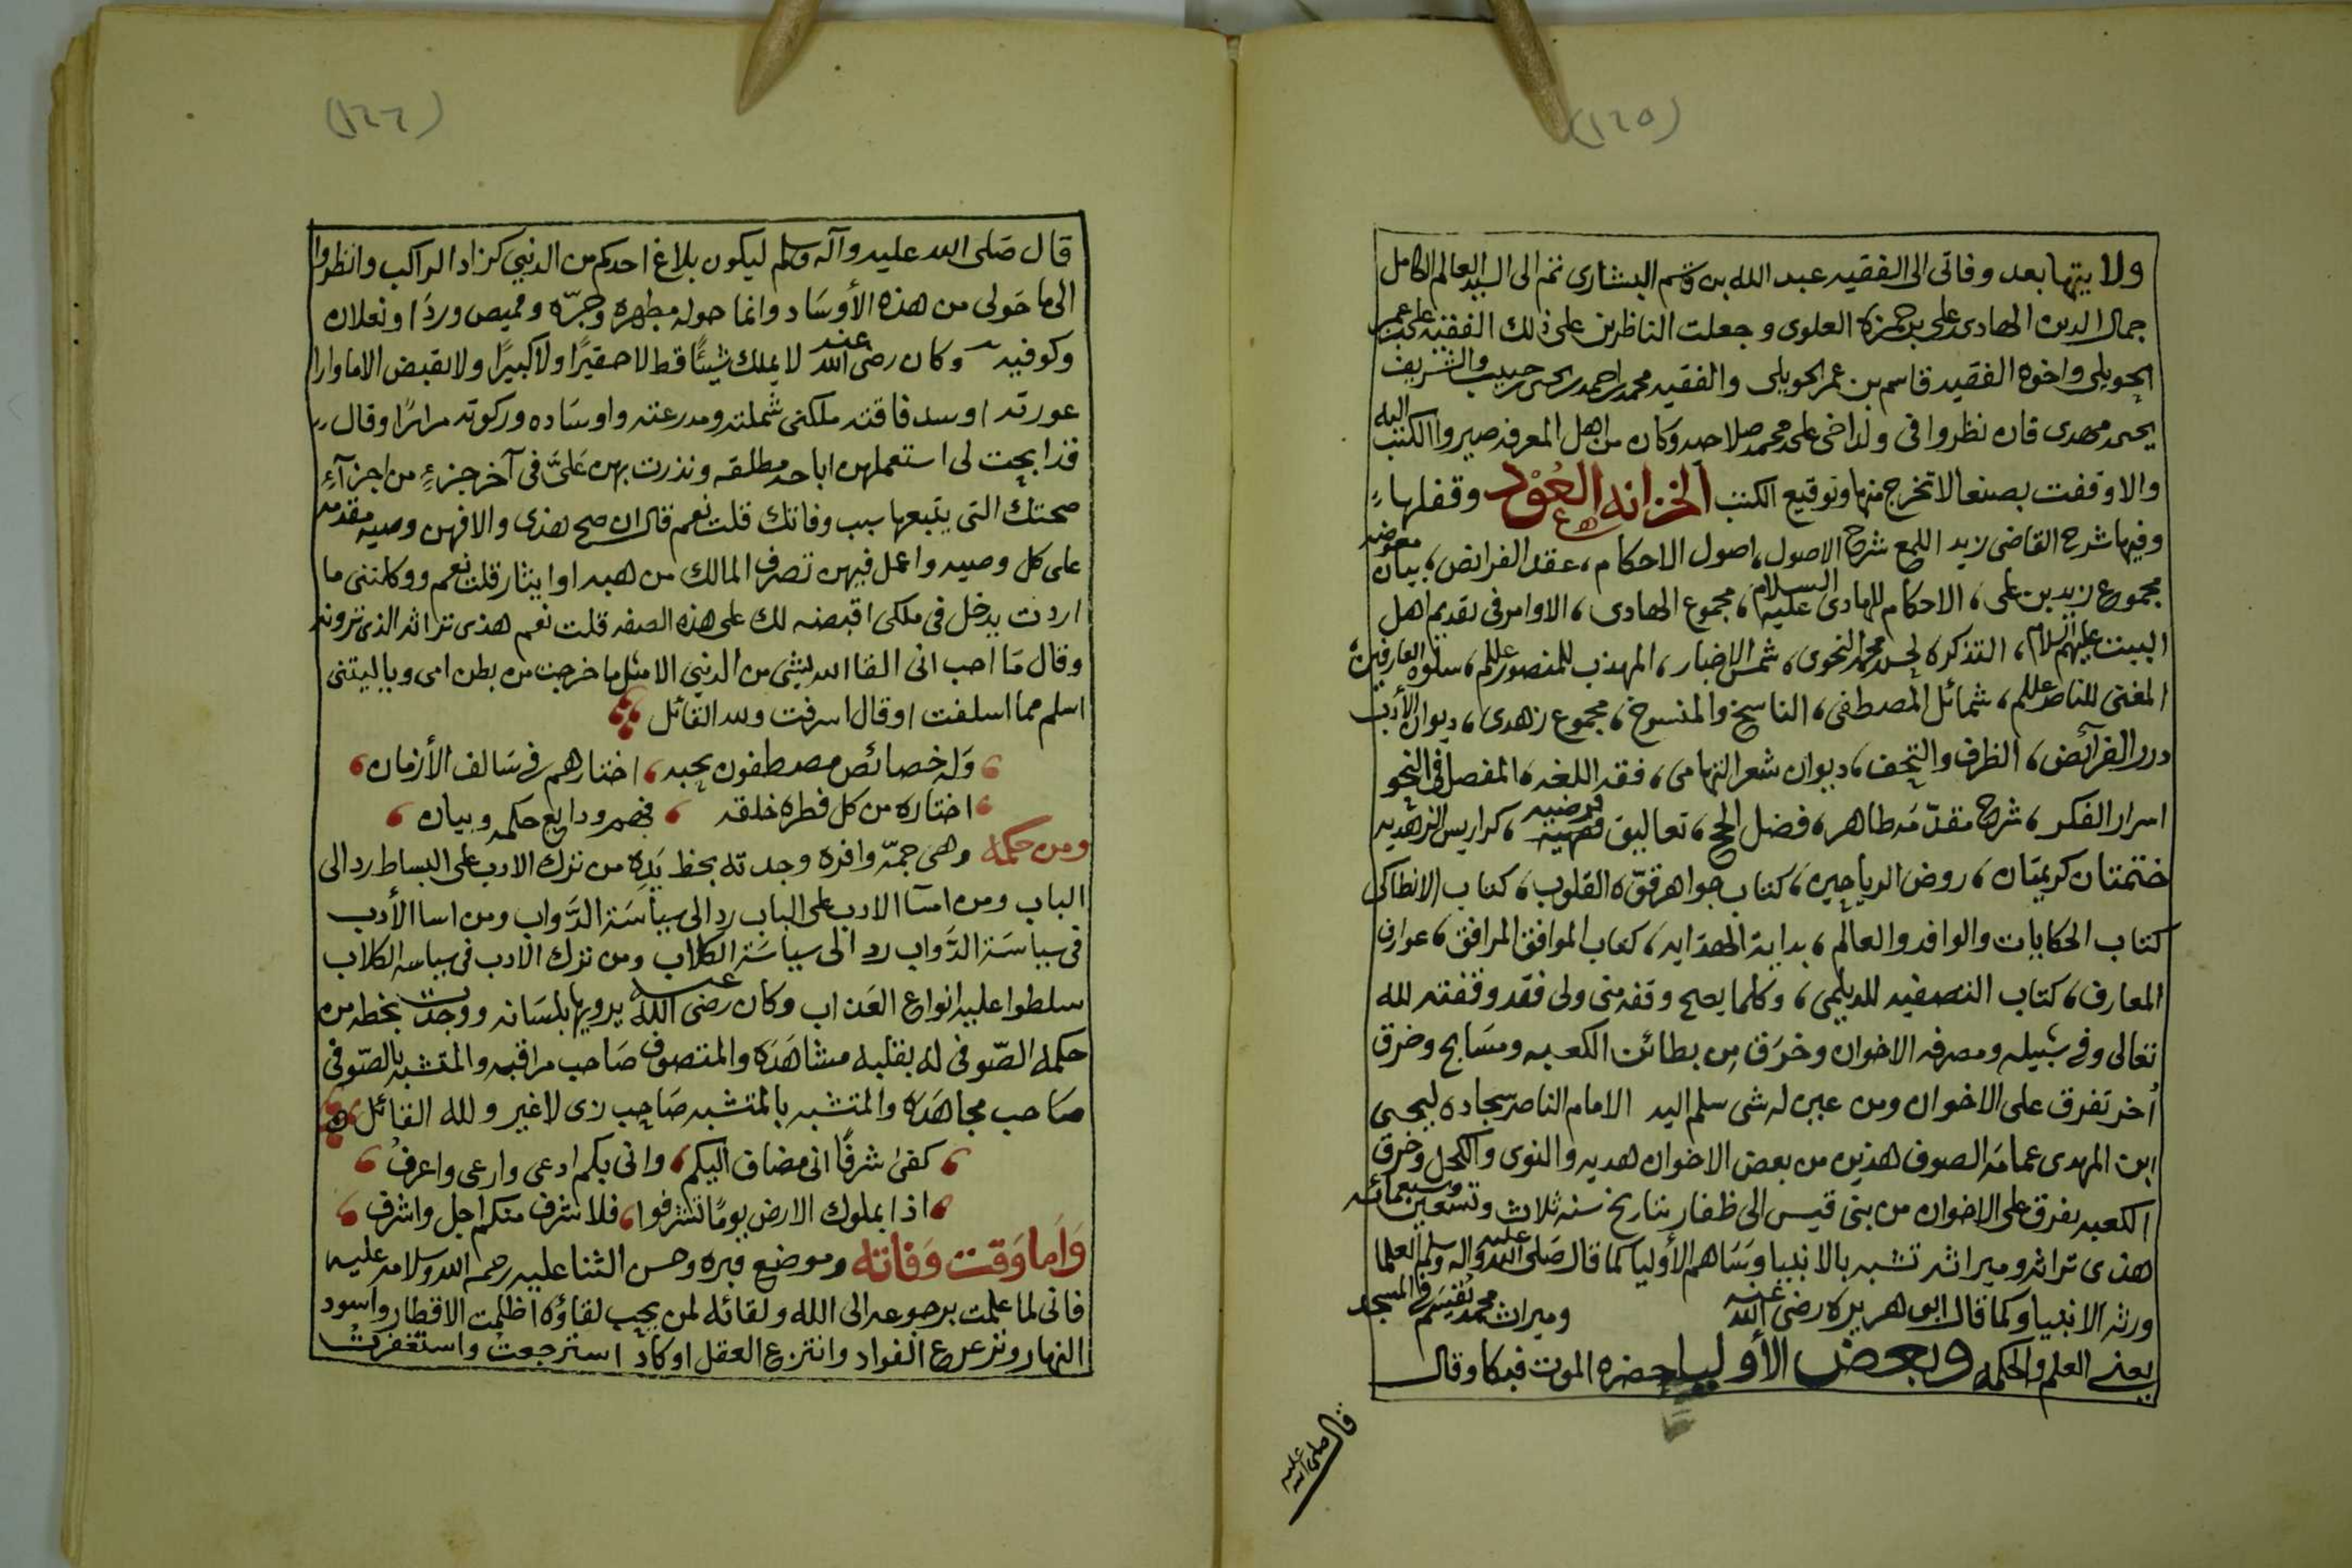 (١٦٥)
ولايتها بعد وفاتي الى الفقيه عبد الله بن قاسم البشاري ثم الى السيد العالم الكامل
جمال الدين الهادي علي بن حمزة العلوي وجعلت الناظرين على ذلك الفقيه علي بن عمر
الحويلي واخوه الفقيه قاسم بن عمر الحويلي والفقيه محمد بن احمد بن يحيى بن حبيب والشريف
يحيى مهدي فان نظروا في ولد اخي علي محمد صلاحه وكان من اهل المعرفه صيروا الكتب اليه
والا وقفت بصنعا لا تخرج منها وتوقيع الكتب الخزانه العود وقفلها
وفيها شرح القاضي زيد اللمع شرح الاصول، اصول الاحكام، عقد الفرائض، بيان معوضه
مجموع زيد بن علي، الاحكام للهادي عليه السلام، مجموع الهادي، الاوامر في تقديم اهل
البيت عليهم السلام، التذكره لحسن محمد النحوي، شمس الاخبار، المهذب للمنصور علم، سلوة العارفين
المغني للناصر علم، شمائل المصطفى، الناسخ والمنسوخ، مجموع زهدي، ديوان الأدب
درر الفرآئض، الظرف والتحف، ديوان شعر التهامي، فقه اللغه، المفصل في النحو
اسرار الفكر، شرح مقدّمة طاهر، فضل الحج، تعاليق فقهية فرضيه، كراريس الزهديه
ختمتان كريمتان، روض الرياحين، كتاب جواهر قوّه القلوب، كتاب الانطاكي
كتاب الحكايات والوافد والعالم، بداية الهدايه، كتاب الموافق المرافق، عوارف
المعارف، كتاب التصفيه للديلمي، وكلما يصح وقفه مني ولي فقد وقفته لله
تعالى وفي سبيله ومصرفه الاخوان وخرق من بطائن الكعبه ومسابح وخرق
أخر تفرق على الاخوان ومن عين له شي سلم اليه الامام الناصر سجاده ليحيى
ابن المهدي عمامة الصوف هذين من بعض الاخوان هديه والنوى والكحل وخرق
الكعبه يفرق على الاخوان من بني قيس الى ظفار بتاريخ سنه ثلاث وتسعين وسبعمائه
هذي تراثه وميراثه تشبه بالانبيا وسَاهم الأوليا كما قال صلى الله عليه واله وسلم العلما
ورثه الانبيا وكما قال ابو هريره رضي الله عنه وميراث محمد يُقسَم في المسجد
يعني العلم والحكمه وبعض الأوليا حضره الموت فبكا وقال
قال صلى الله عليه
(١٦٦)
قال صَلى الله عليه وآله وسلم ليكون بلاغ احدكم من الدني كزاد الراكب وانظروا
الى ما حَولي من هذه الأوسَاد وانما حوله مطهره وجرّه وقميص وردَا ونعلان
وكوفيه وكان رضي الله عنه لا يملك شيئًا قط لا حقيرًا ولا كبيرًا ولا يقبض الا ما وارا
عورته او سد فاقته ملكني شملته ومدرعته واوسَاده وركوته مرارًا وقال
قد ابحت لي استعملهن اباحه مطلقه ونذرت بهن عَليَّ في آخر جزءٍ من اجزآءِ
صحتك التي يتبعها سبب وفاتك قلت نعم قال ان صح هذي والا فهن وصيه مقدمه
على كل وصيه واعمل فيهن تصرف المالك من هبه او ايثار قلت نعم ووكلتني ما
اردت يدخل في ملكي اقبضه لك على هذه الصفه قلت نعم هذي تراثه الذي ترونه
وقال مَا احب اني القا الله بشي من الدني الا مثل ما خرجت من بطن امي وياليتني
اسلم مما اسلفت او قال اسرفت ولله القائل
وَله خصائص مصطفون بحبه، اختارهم في سَالف الأزمان
اختاره من كل فطره خلقه، فيهم ودايع حكمه وبيان
ومن حكمه وهي جمّه وافره وجدته بخط يَدِه من ترك الادب على البساط رد الى
الباب ومن اسآ الادب على الباب رد الى سياسَة الدَّواب ومن اسا الأدب
في سياسَة الدَّواب رد الى سياسَة الكلاب ومن ترك الادب في سياسه الكلاب
سلطوا عليه انواع العَذاب وكان رضي الله عنه يرويها بلسَانه ووجدت بخطه من
حكمه الصّوفي له بقلبه مشاهَدَه والمتصوف صَاحب مراقبه والمتشبه بالصّوفي
صَاحب مجاهَدَه والمتشبه بالمتشبه صَاحِب زي لا غير ولله القائل
كفى شرفًا اني مضاف اليكم، واني بكم ادعى وارعى واعرفُ
اذا بملوك الارض يومًا تشرفوا، فلا شرف منكم اجل واشرف
وَأمَا وَقت وَفاته وموضع قبره وحسن الثنا عليه رحمه الله وسلامه عليه
فاني لما علمت برجوعه الى الله ولقائه لمن يحب لقاؤه أظلمت الاقطار واسود
النهار وتزعزع الفواد وانتزع العقل او كاد استرجعتُ واستغفرتُ